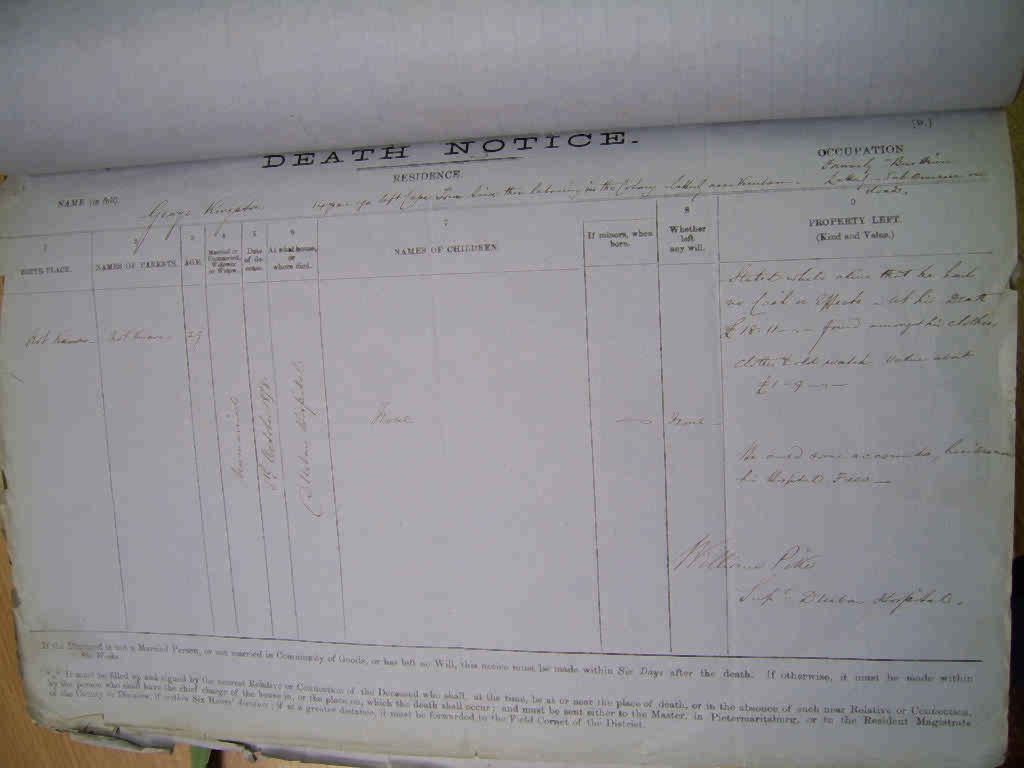 (D.)
DEATH NOTICE.
NAME (in full).
RESIDENCE.
OCCUPATION
George
left Cape Town since then labouring in the Colony
1 BIRTH PLACE.
2 NAMES OF PARENTS.
3 AGE.
4 Married or Unmarried, Widower or Widow.
5 Date of decease.
6 At what house, or where died.
7 NAMES OF CHILDREN
If minors, when born.
8 Whether left any will.
9 PROPERTY LEFT. (Kind and Value.)
Stated while alive that he had
no Cash or Effects - At his Death
£18-11-- found amongst his clothes,
Clothes & old watch value about
£1-9--
Not known
Not known
Unmarried
Durban Hospital
None
None
He owed some accounts,
his Hospital Fees
William
Supt. Durban Hospital.
If the Deceased is not a Married Person, or not married in Community of Goods, or has left no Will, this notice must be made within Six Days after the death. If otherwise, it must be made within
Six Weeks.
It must be filled up and signed by the nearest Relative or Connection of the Deceased who shall, at the time, be at or near the place of death, or in the absence of such near Relative or Connection,
by the person who shall have the chief charge of the house in, or the place on, which the death shall occur; and must be sent either to the Master, in Pietermaritzburg, or to the Resident Magistrate
of the County or Division, if within Six Hours' distance; if at a greater distance, it must be forwarded to the Field Cornet of the District.